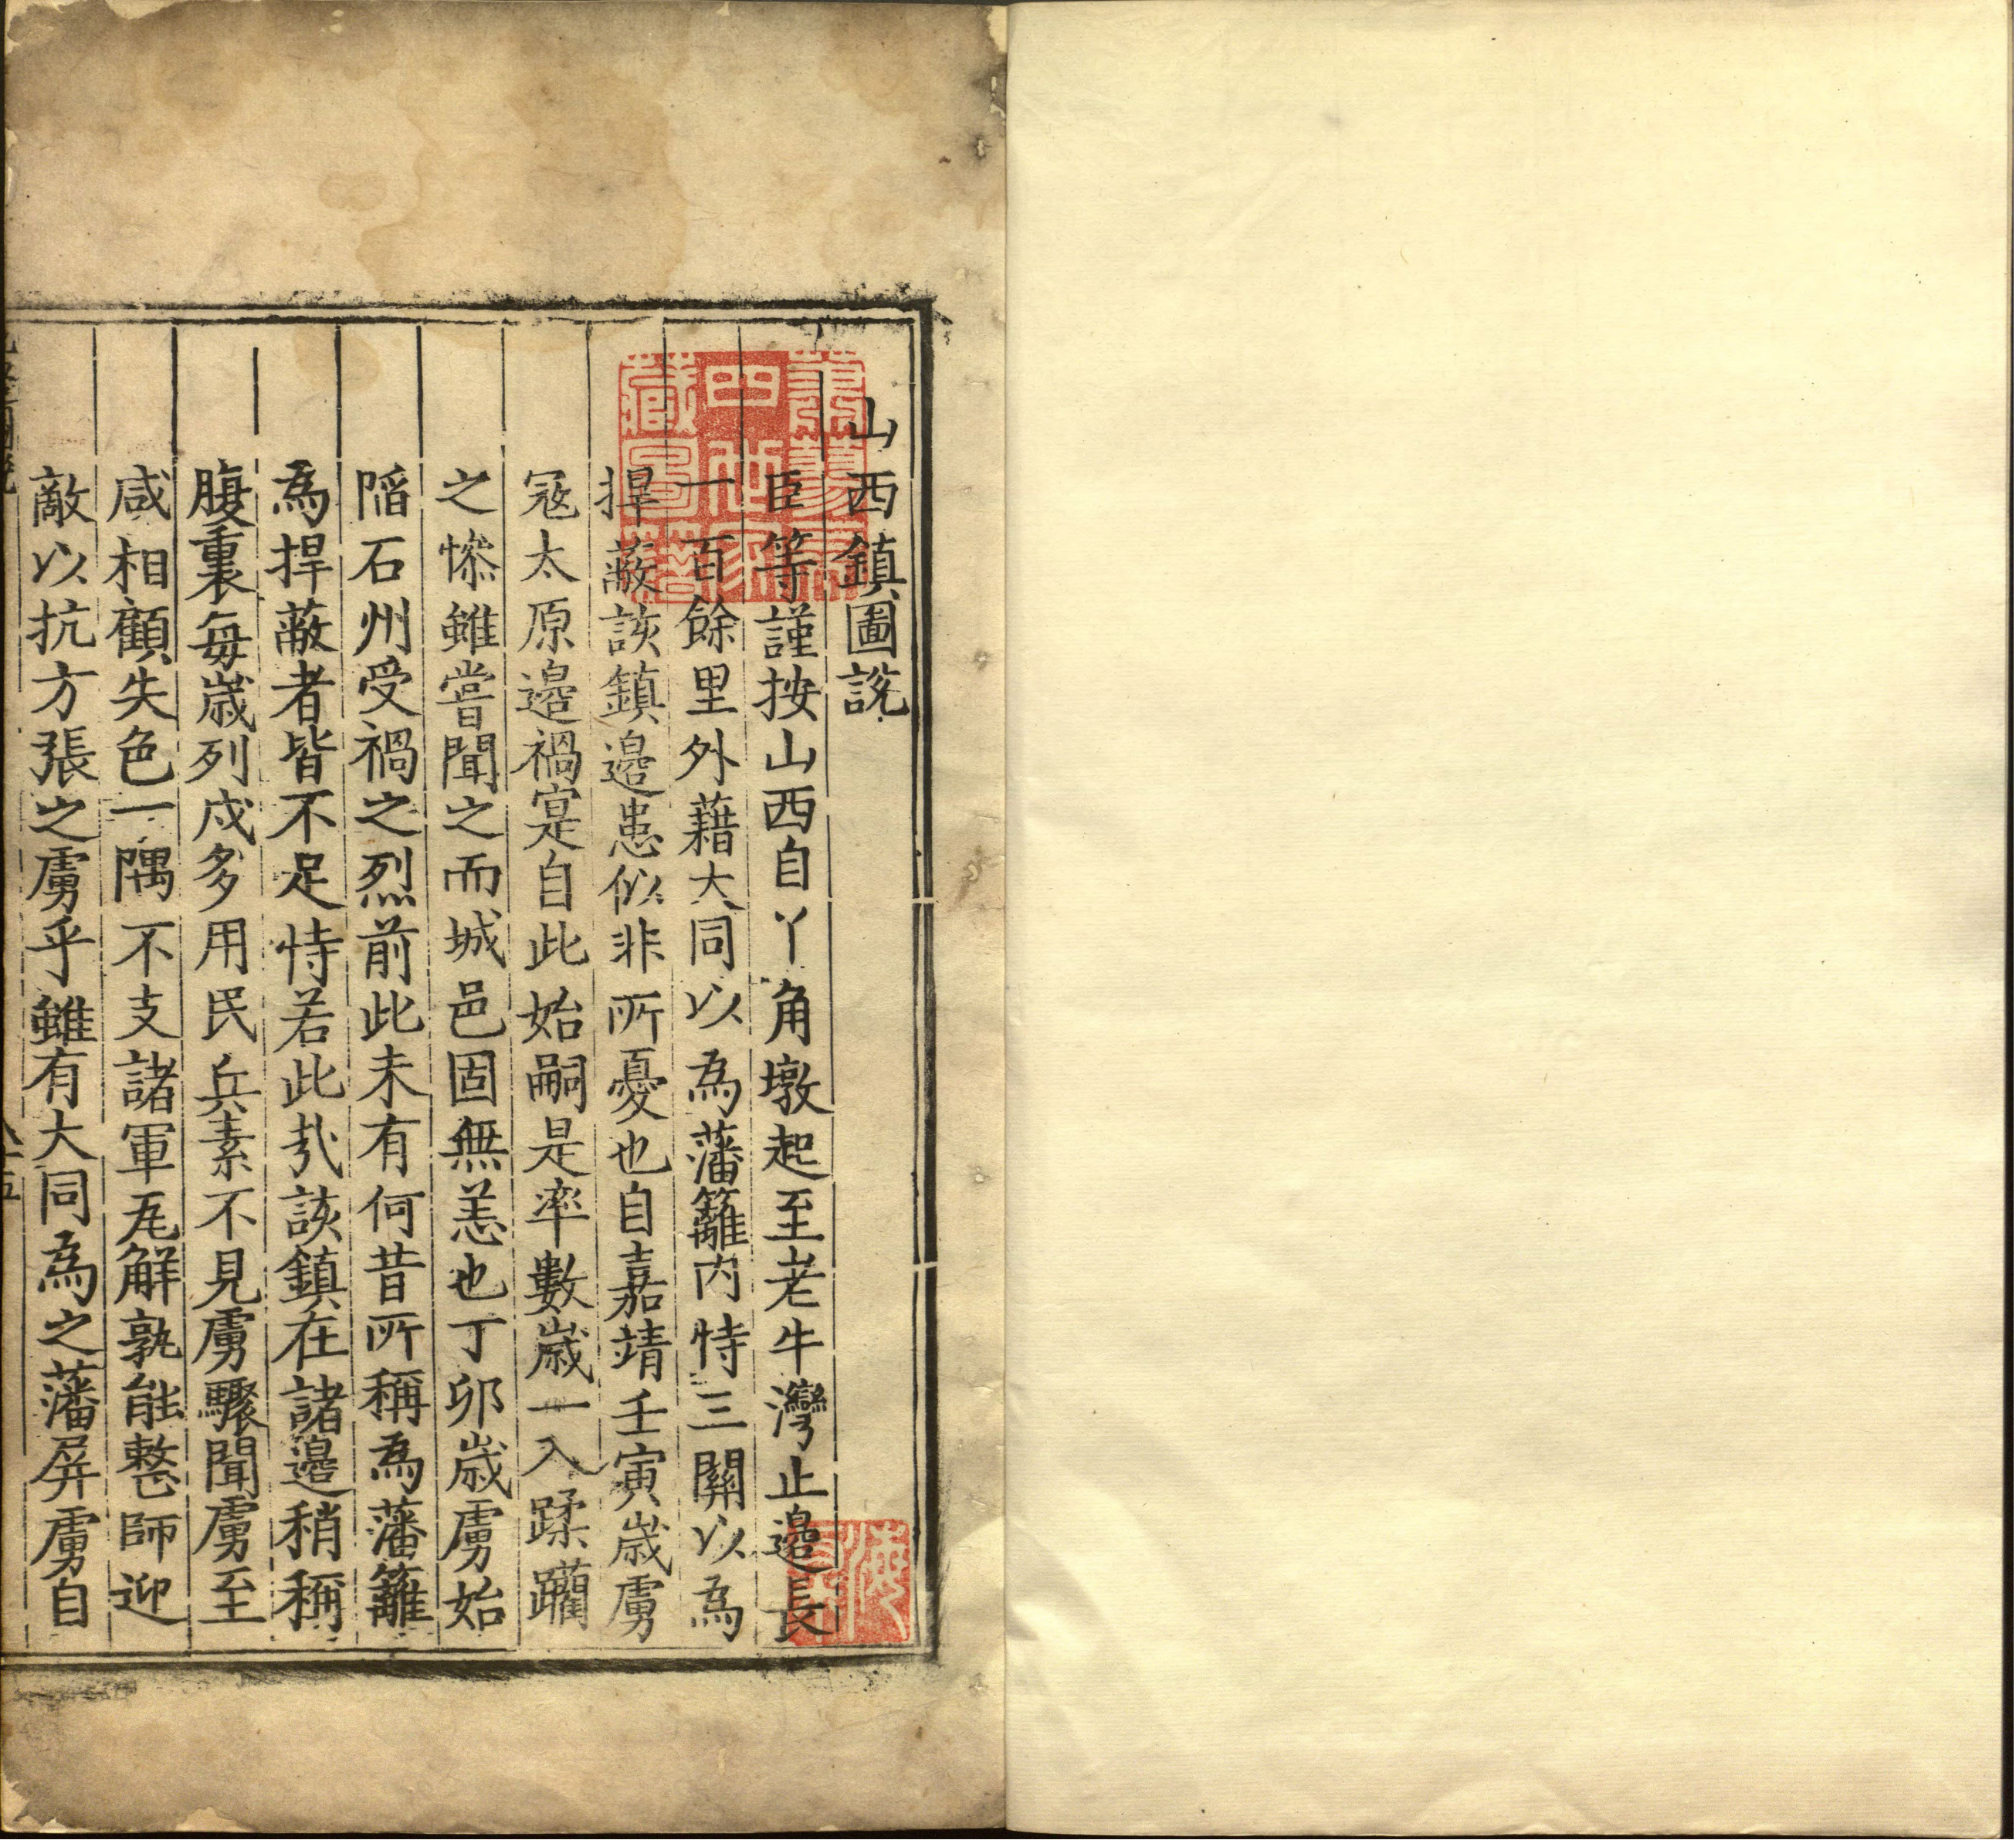 山西鎮圖說
臣等謹按山西自丫角墩起至老牛灣止邉長
一百餘里外藉大同以為藩籬内恃三關以為
捍蔽該鎮邉患似非所憂也自嘉靖壬寅歲虜
冦太原邉禍寔自此始嗣是率數歲一入蹂躪
之慘雖嘗聞之而城邑固無恙也丁卯歲虜始
陷石州受禍之烈前此未有何昔所稱為藩籬
為捍蔽者皆不足恃若此㢤該鎮在諸邉稍稱
腹裏每歲列戍多用民兵素不見虜驟聞虜至
咸相顧失色一隅不支諸軍瓦解孰能整師迎
敵以抗方張之虜乎雖有大同為之藩屏虜自